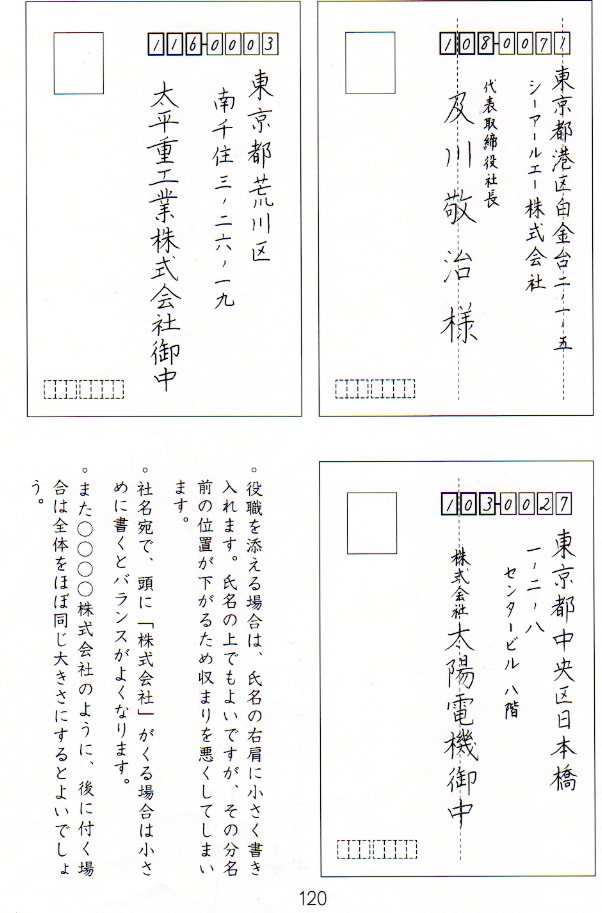 108-0071
東京都港区白金台二ノ一ノ五
シーアールエー株式会社
代表取締役社長
及川敬治様
116-0003
東京都荒川区
南千住三ノ二六ノ一九
太平重工業株式会社御中
103-0027
東京都中央区日本橋
一ノ二ノ八
センタービル 八階
株式会社太陽電機御中
。役職を添える場合は、氏名の右肩に小さく書き
入れます。氏名の上でもよいですが、その分名
前の位置が下がるため収まりを悪くしてしまい
ます。
。社名宛で、頭に「株式会社」がくる場合は小さ
めに書くとバランスがよくなります。
。また〇〇〇〇株式会社のように、後に付く場
合は全体をほぼ同じ大きさにするとよいでしょ
う。
120